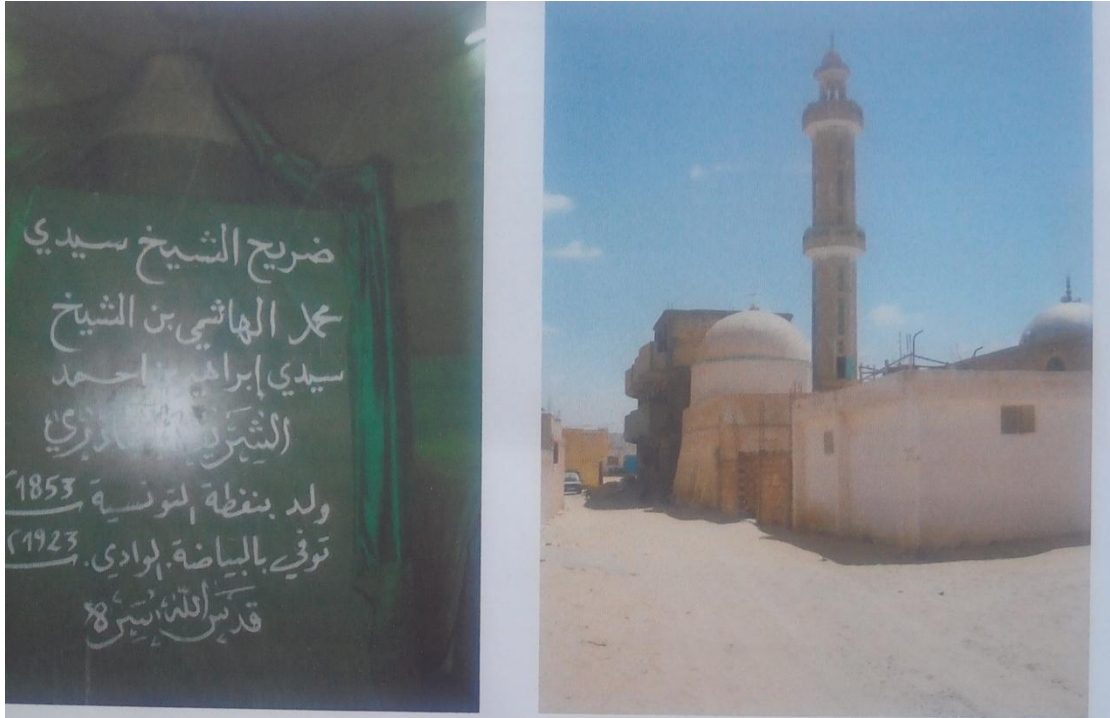 ضريح الشيخ سيدي
محمد الهاشمي بن الشيخ
سيدي إبراهيم احمد
الشَّرِيف
ولد بنفطة التونسية 1853م
توفي بالبياضة الوادي. 1923م
قدَّس اللّه سِرَّه